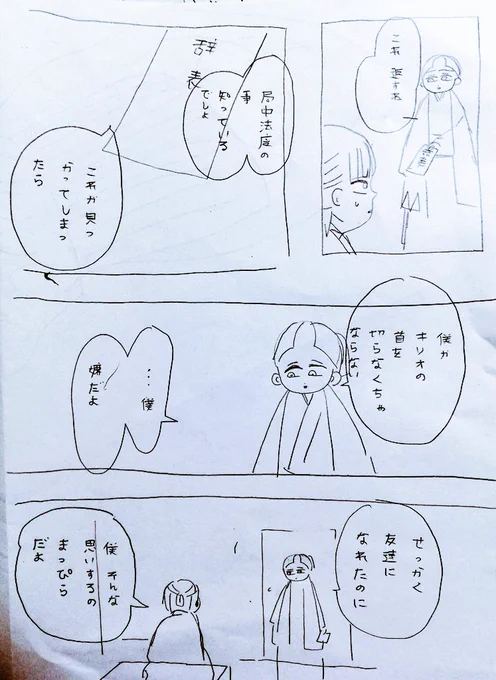 これ 返すね
辞表
局中法度の
事
知っている
でしょ
これが見っ
かってしまっ
たら
僕が
キリオの
首を
切らなくちゃ
ならない
…僕
嫌だよ
せっかく
友達に
なれたのに
僕 そんな
思いするの
まっぴら
だよ